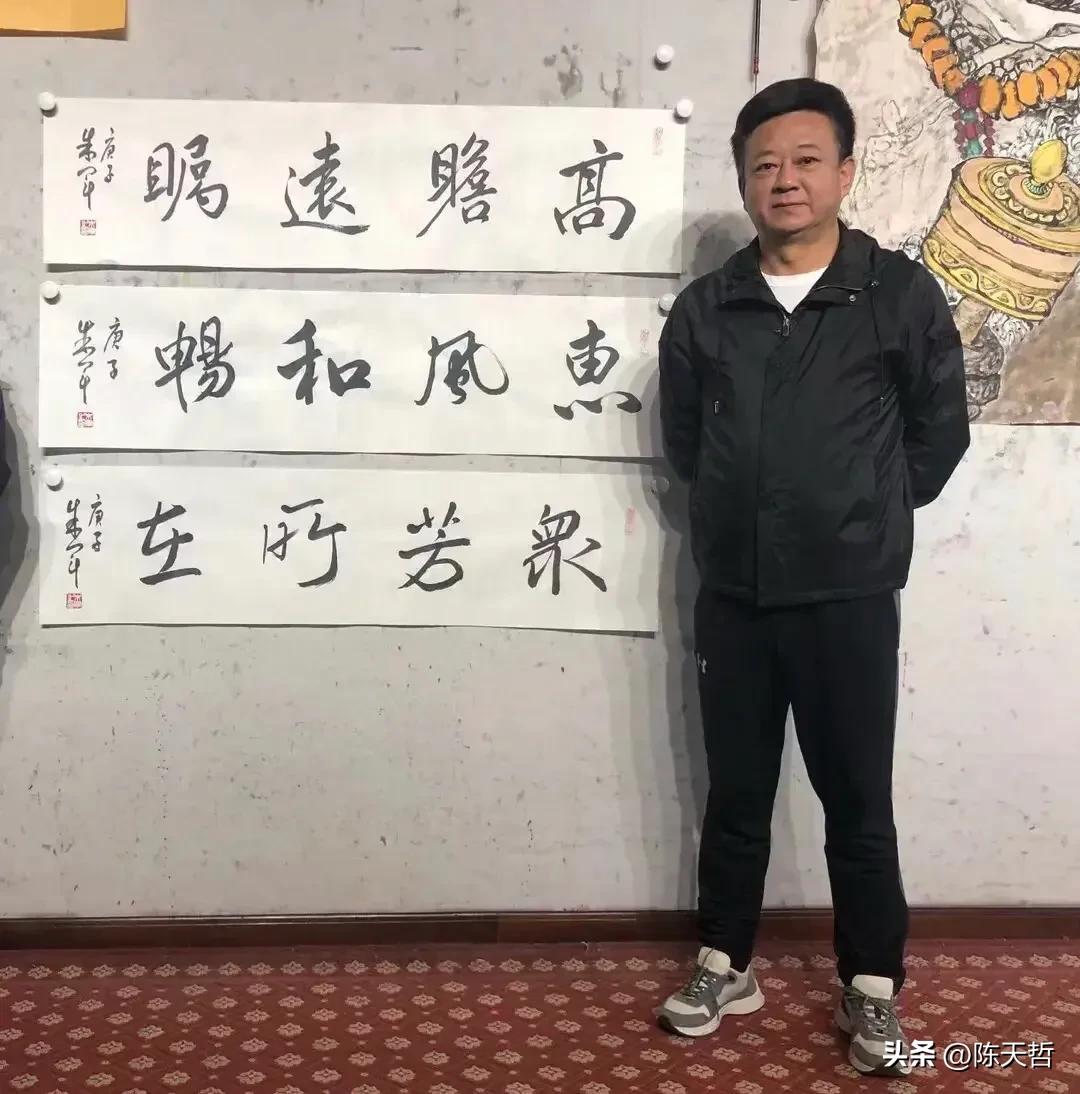 高瞻遠瞩
庚子
朱军
惠風和暢
庚子
朱军
衆芳所在
庚子
朱军
头条 @陈天哲